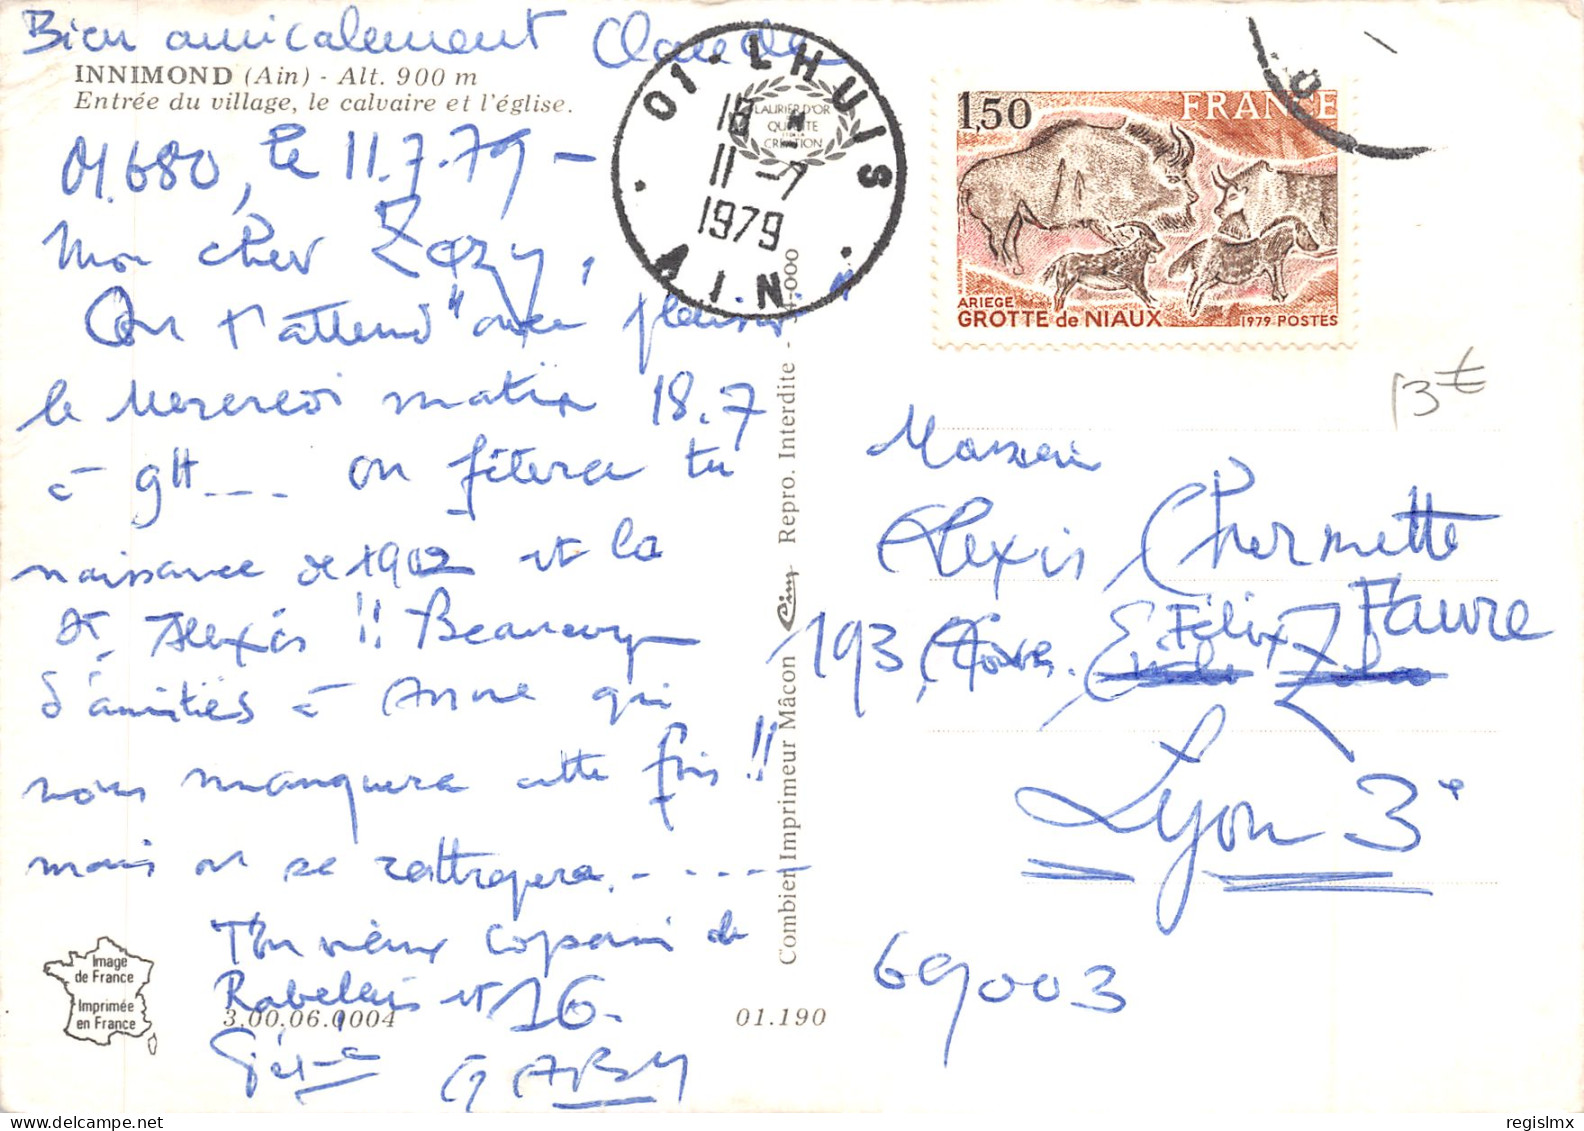 Bien amicalement Claude
INNIMOND (Ain) - Alt. 900 m
Entrée du village, le calvaire et l'église.
01.680, le 11.7.79 -
Mon cher
On t'attend "avec plaisir"
le Mercredi matin 18.7
à 9H... on fêtera ta
naissance de 1902 et la
St. Alexis !! Beaucoup
d'amitiés à Anne qui
nous manquera cette fois !!
mais on se rattrapera. - - - - -
Ton vieux copain de
Rabelais et 16.
GABY
Image
de France
Imprimée
en France
3.00.06.0004
01.190
Combier Imprimeur Mâcon Cim Repro. Interdite -
01 - LHUIS
AIN
18 *
11 -7
1979
LAURIER D'OR
QUALITE
CREATION
1,50 FRANCE
ARIEGE
GROTTE de NIAUX 1979 POSTES
13€
Monsieur
Alexis Chermette
193, Félix Faure
Lyon 3e
69003
regislmx